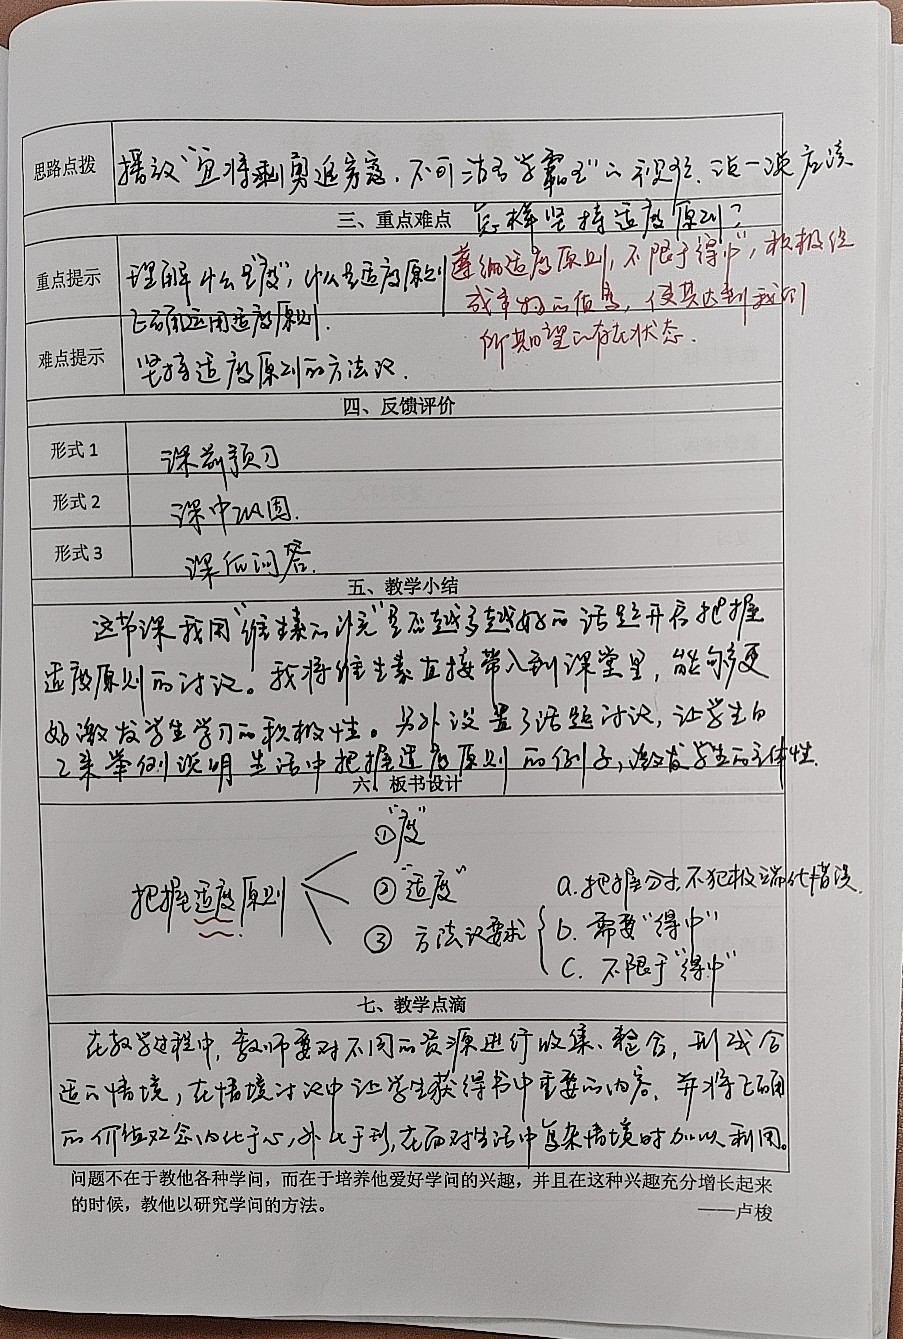 思路点拨 播放“宜将剩勇追穷寇,不可沽名学霸王”的视频.谈一谈应该
三、重点难点 怎样坚持适度原则?
重点提示 理解什么是“度”,什么是适度原则
正确运用适度原则.
遵循适度原则,不限于“得中”,积极促
成事物的质变,使其达到我们
所期望的存在状态.
难点提示 坚持适度原则的方法论.
四、反馈评价
形式1 课前预习
形式2 课中巩固.
形式3 课后问答.
五、教学小结
这节课我用“维生素的”是否越多越好的话题开启把握
适度原则的讨论。我将维生素直接带入到课堂里,能够更
好激发学生学习的积极性。另外设置了话题讨论,让学生自
己来举例说明生活中把握适度原则的例子,激发学生的主体性.
六、板书设计
把握适度原则
①“度”
②“适度”
③ 方法论要求
a.把握分寸,不犯极端化错误.
b. 需要“得中”
c. 不限于“得中”
七、教学点滴
在教学过程中,教师要对不同的资源进行收集、整合,形成合
适的情境,在情境讨论中让学生获得书中重要的内容.并将正确
的价值观念内化于心,外化于形,在面对生活中复杂情境时加以利用。
问题不在于教他各种学问,而在于培养他爱好学问的兴趣,并且在这种兴趣充分增长起来
的时候,教他以研究学问的方法。
——卢梭